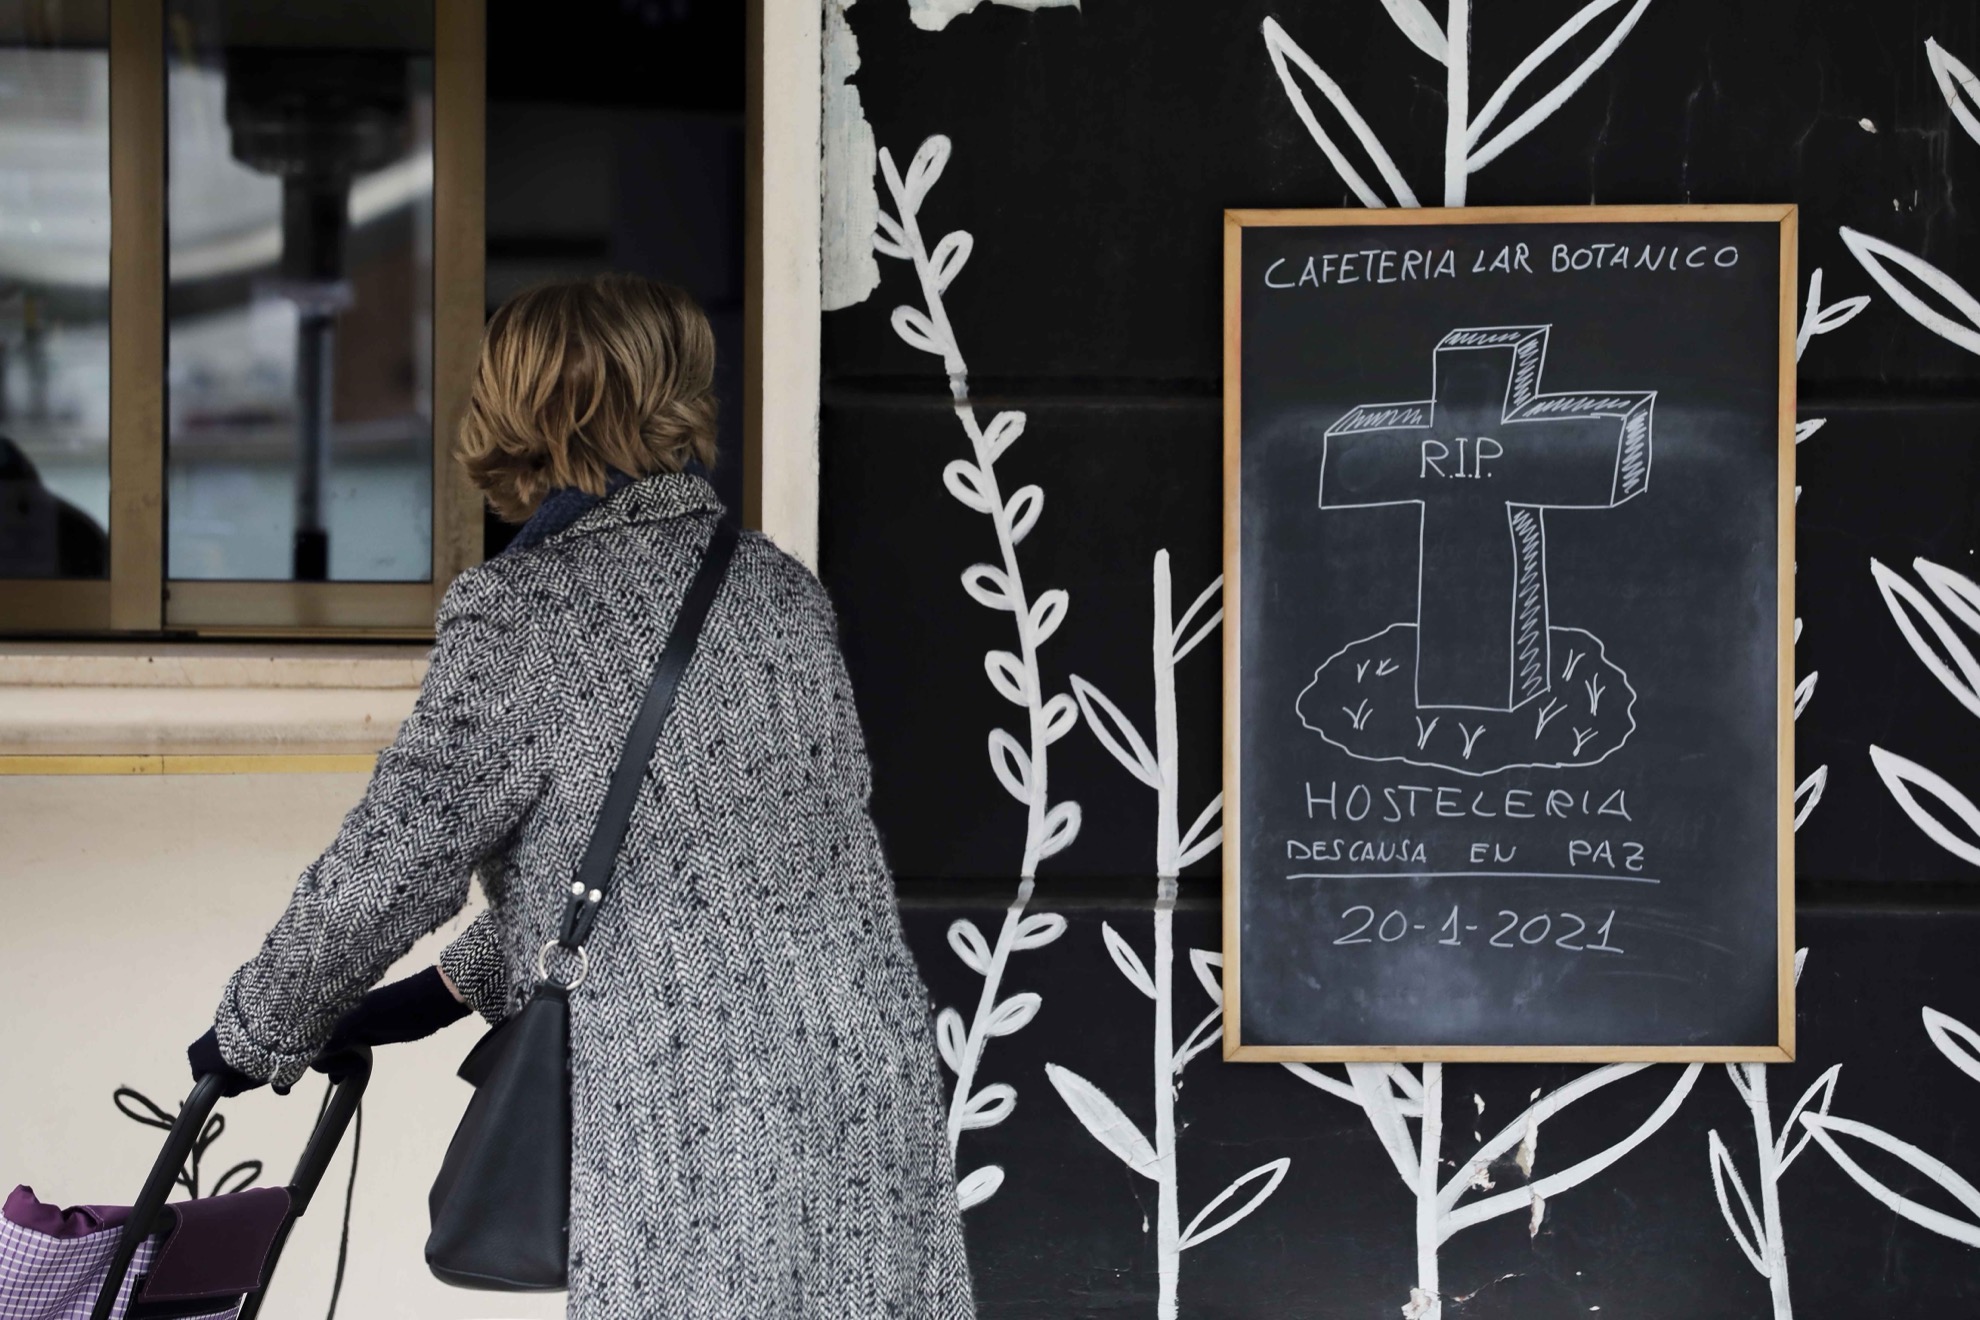 CAFETERIA LAR BOTANICO
R.I.P.
HOSTELERIA
DESCANSA EN PAZ
20-1-2021